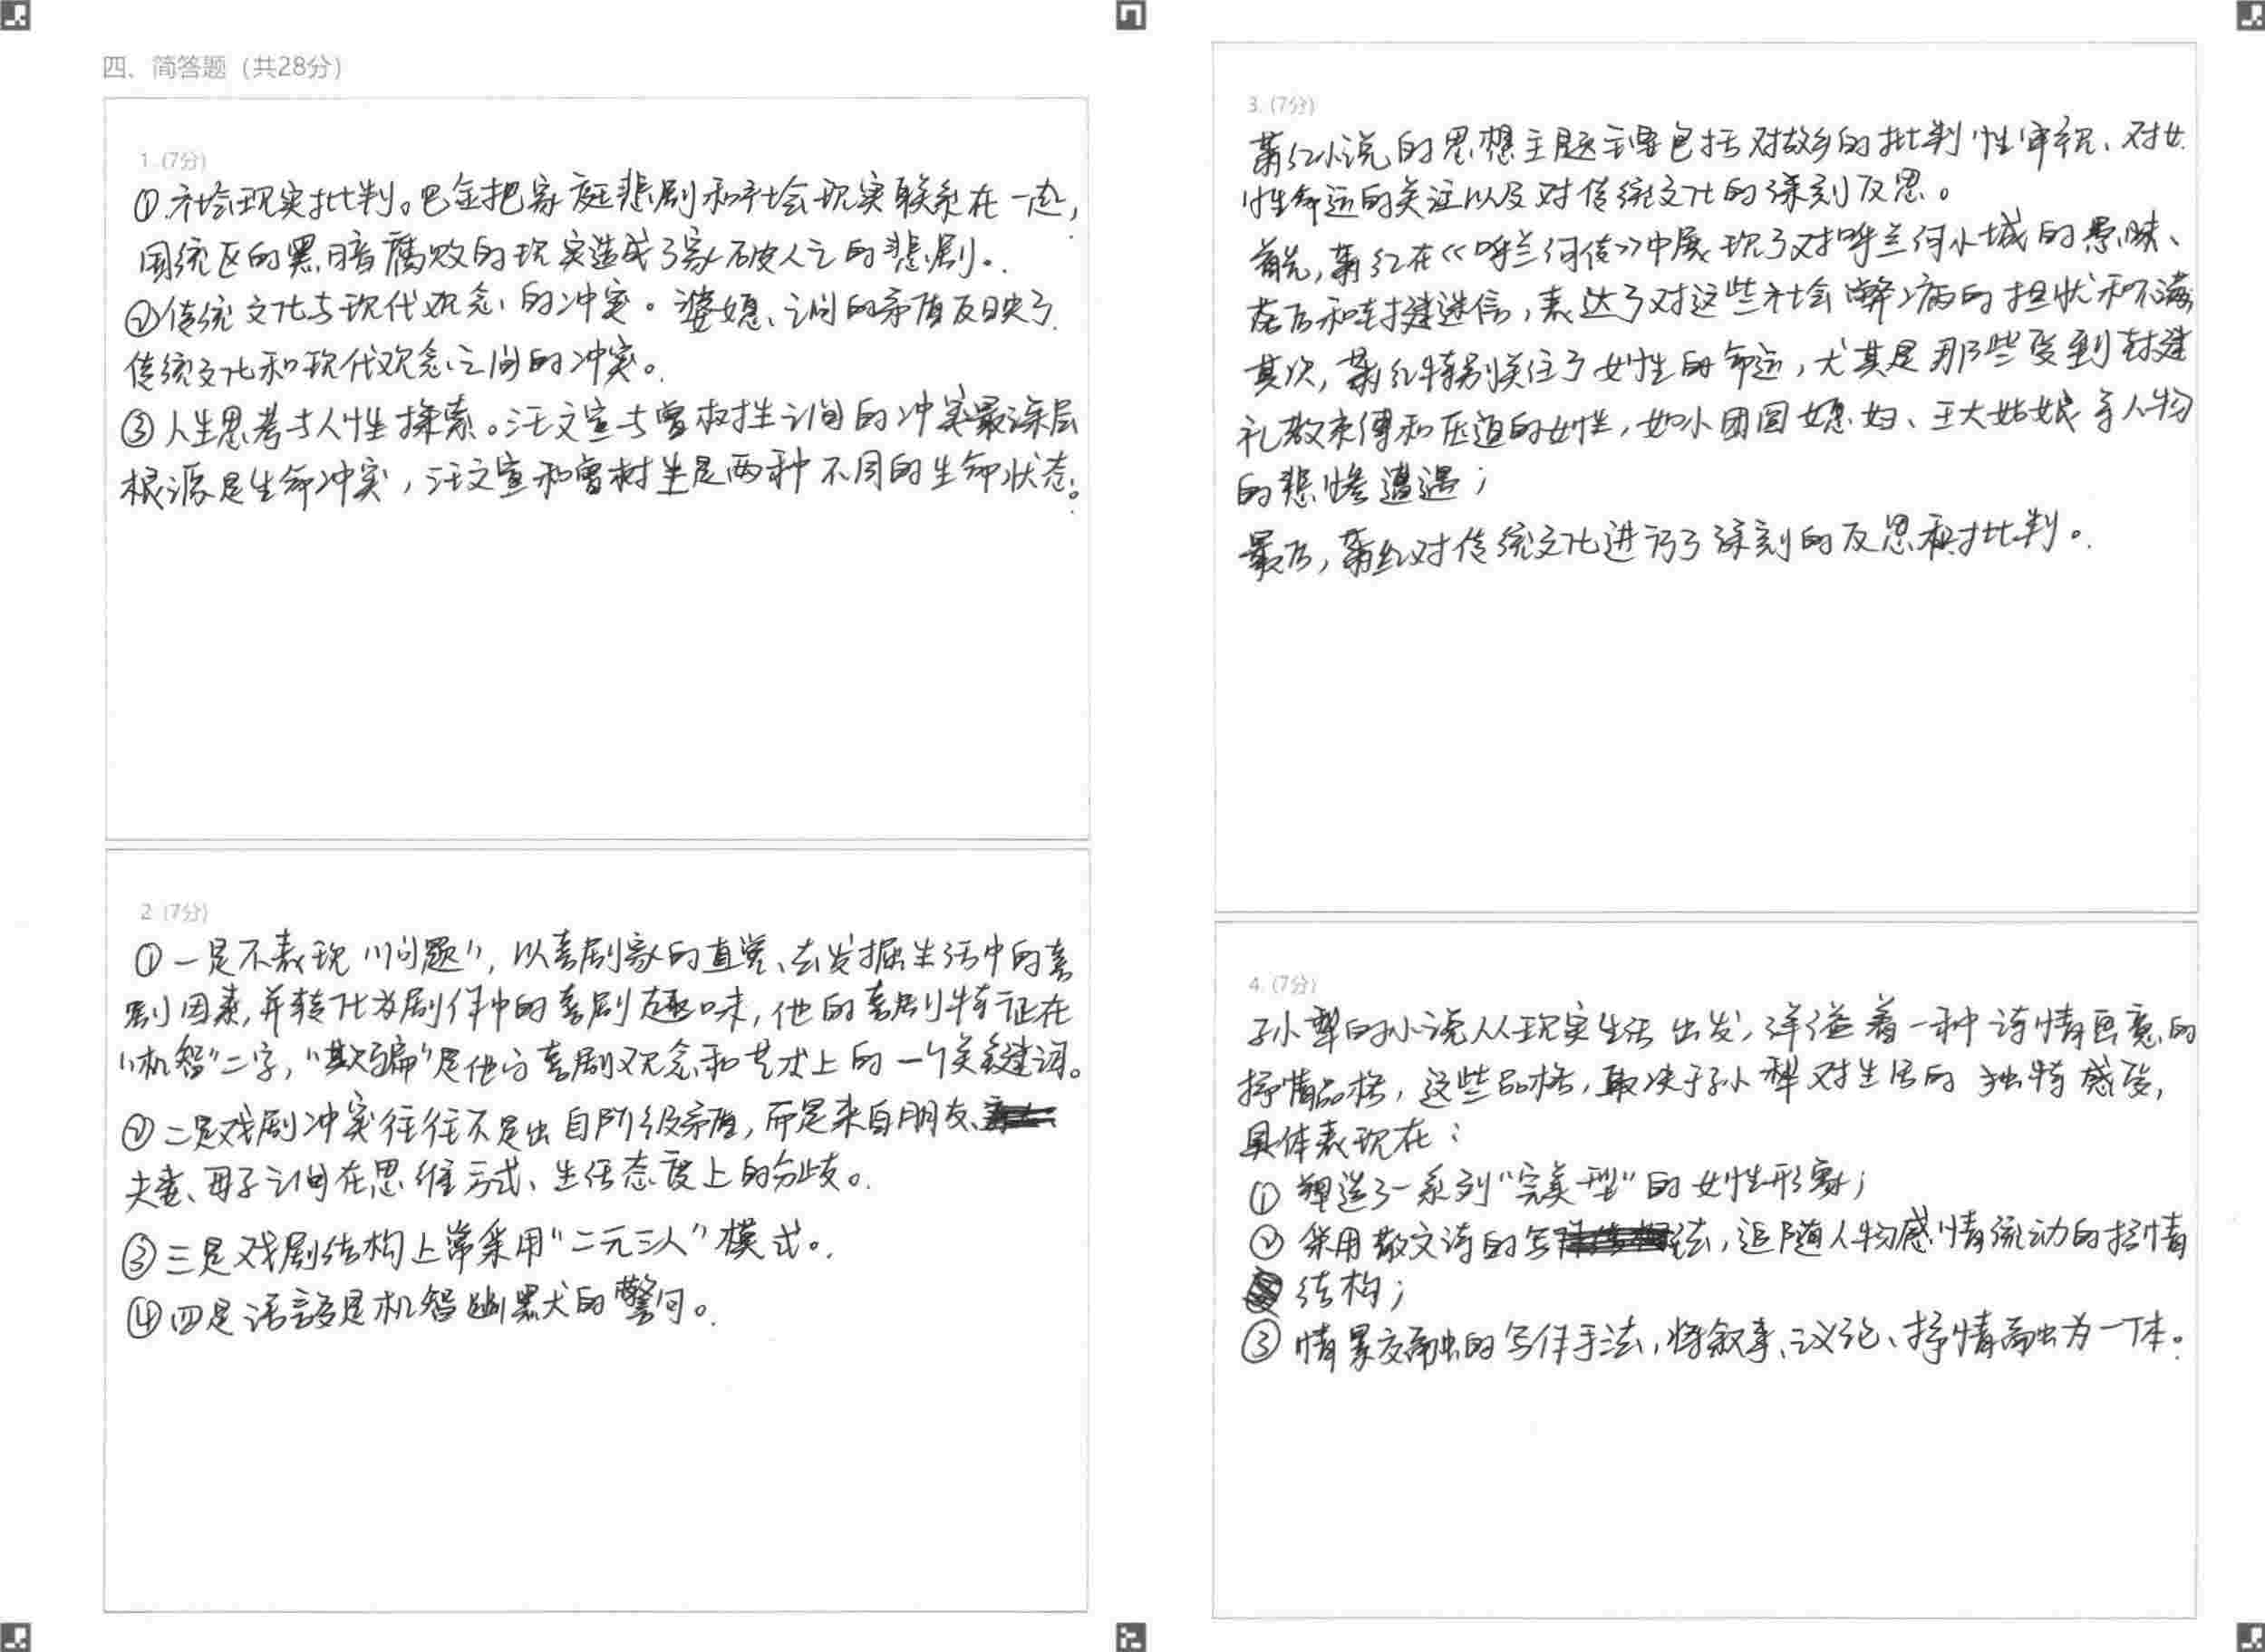 四、简答题（共28分）
1. (7分)
①社会现实批判。巴金把家庭悲剧和社会现实联系在一起，
国统区的黑暗腐败的现实造成了家破人亡的悲剧。
②传统文化与现代观念的冲突。婆媳之间的矛盾反映了
传统文化和现代观念之间的冲突。
③人生思考与人性探索。汪文宣与曾树生之间的冲突最深层
根源是生命冲突，汪文宣和曾树生是两种不同的生命状态。
2. (7分)
①一是不表现“问题”，以喜剧家的直觉、去发掘生活中的喜
剧因素，并转化为剧作中的喜剧趣味，他的喜剧特证在
“机智”二字，“欺骗”是他的喜剧观念和艺术上的一个关键词。
②二是戏剧冲突往往不是出自阶级矛盾，而是来自朋友、
夫妻、母子之间在思维方式、生活态度上的分歧。
③三是戏剧结构上常采用“二元三人”模式。
④四是语言多是机智幽默的警句。
3. (7分)
萧红小说的思想主题主要包括对故乡的批判性审视、对女
性命运的关注以及对传统文化的深刻反思。
首先，萧红在《呼兰河传》中展现了对呼兰河小城的愚昧、
落后和封建迷信，表达了对这些社会弊病的担忧和不满
其次，萧红特别关注了女性的命运，尤其是那些受到封建
礼教束缚和压迫的女性，如小团圆媳妇、王大姑娘等人物
的悲惨遭遇；
最后，萧红对传统文化进行了深刻的反思和批判。
4. (7分)
孙犁的小说从现实生活出发，洋溢着一种诗情画意的
抒情品格，这些品格，取决于孙犁对生活的独特感受，
具体表现在：
①塑造了一系列“完美型”的女性形象；
②采用散文诗的写法，追随人物感情流动的抒情
结构；
③情景交融的写作手法，将叙事、议论、抒情融为一体。